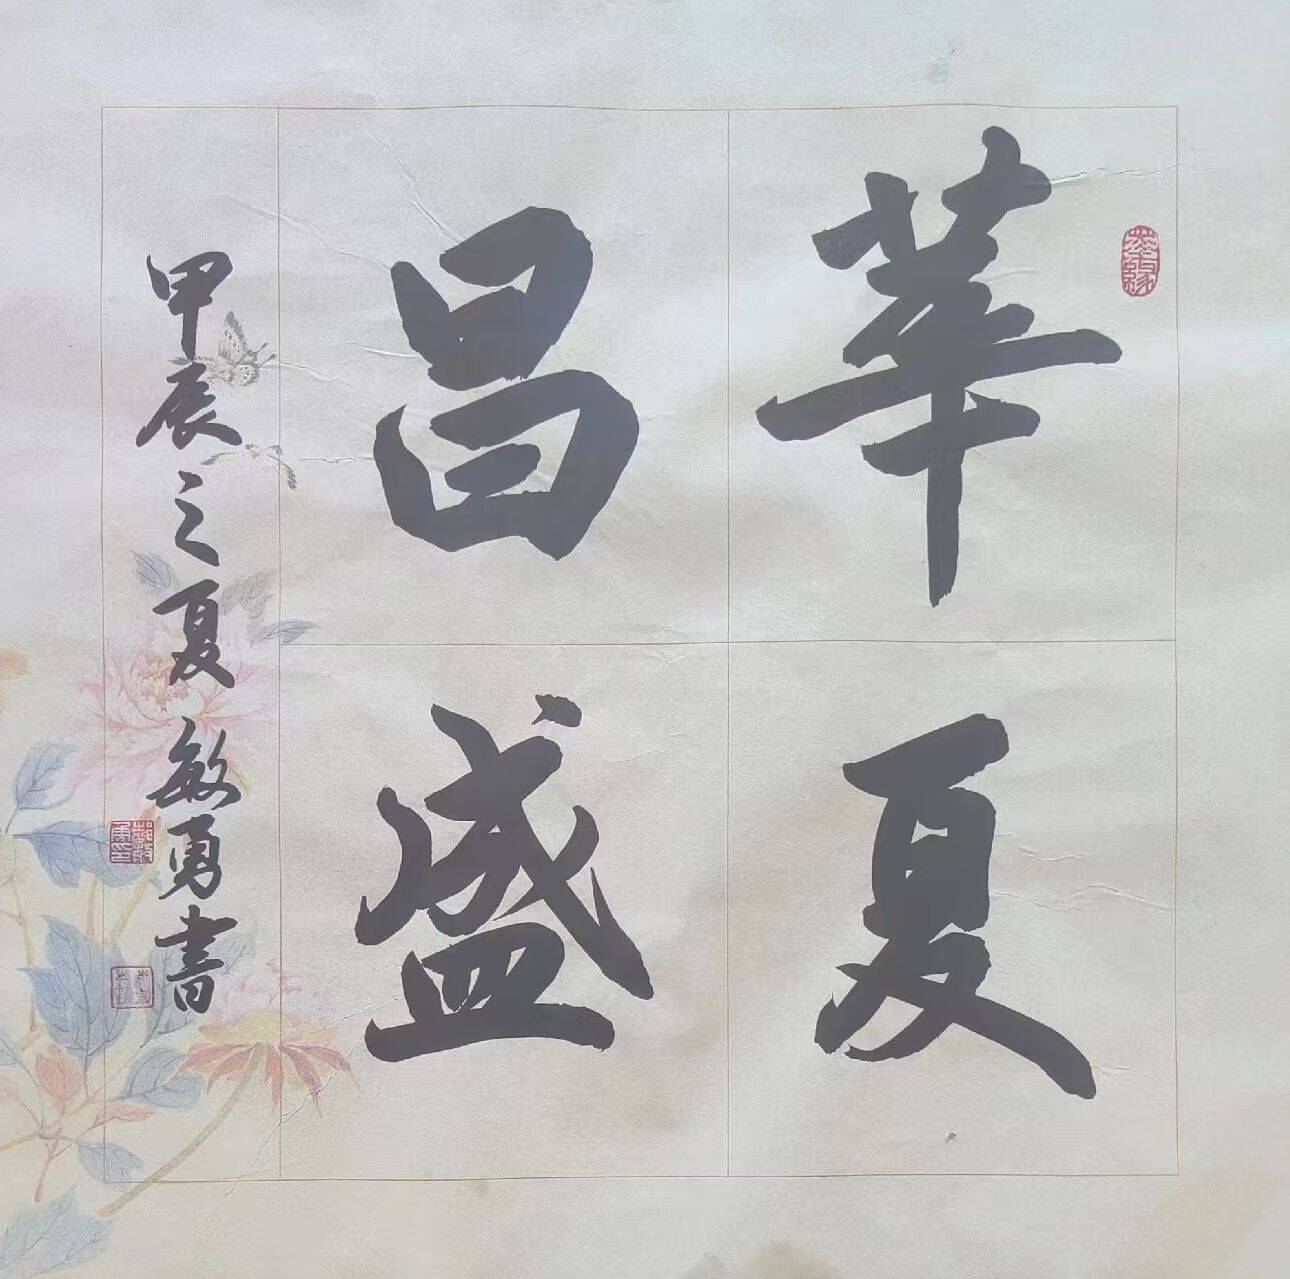 華夏
昌盛
甲辰之夏 敏勇書
墨緣